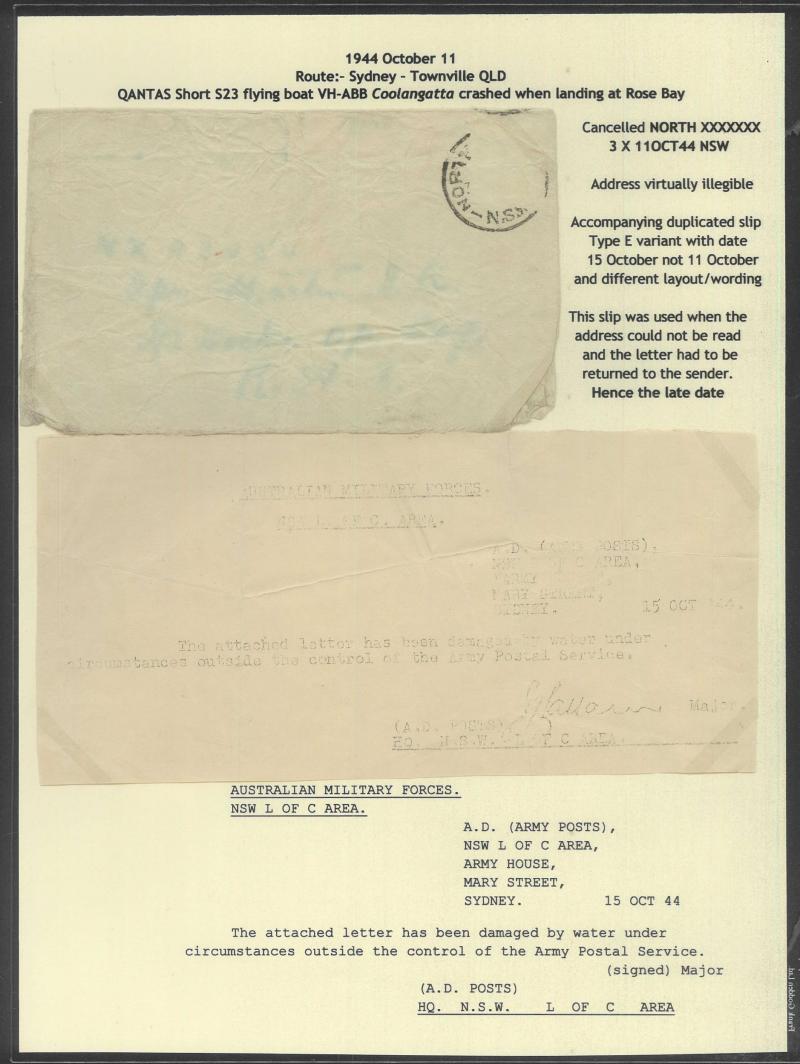 1944 October 11
Route:- Sydney - Townville QLD
QANTAS Short S23 flying boat VH-ABB Coolangatta crashed when landing at Rose Bay
Cancelled NORTH XXXXXXX
3 X 11OCT44 NSW
Address virtually illegible
Accompanying duplicated slip
Type E variant with date
15 October not 11 October
and different layout/wording
This slip was used when the
address could not be read
and the letter had to be
returned to the sender.
Hence the late date
NORTH
N.S.W.
AUSTRALIAN MILITARY FORCES.
NSW L OF C. AREA.
A.D. (ARMY POSTS),
NSW L OF C AREA,
ARMY
MARY STREET,
SYDNEY. 15 OCT 44.
The attached letter has been damaged by water under
circumstances outside the control of the Army Postal Service.
Major.
(A.D. POSTS)
HQ. N.S.W. L OF C AREA.
AUSTRALIAN MILITARY FORCES.
NSW L OF C AREA.
A.D. (ARMY POSTS),
NSW L OF C AREA,
ARMY HOUSE,
MARY STREET,
SYDNEY. 15 OCT 44
The attached letter has been damaged by water under
circumstances outside the control of the Army Postal Service.
(signed) Major
(A.D. POSTS)
HQ. N.S.W. L OF C AREA